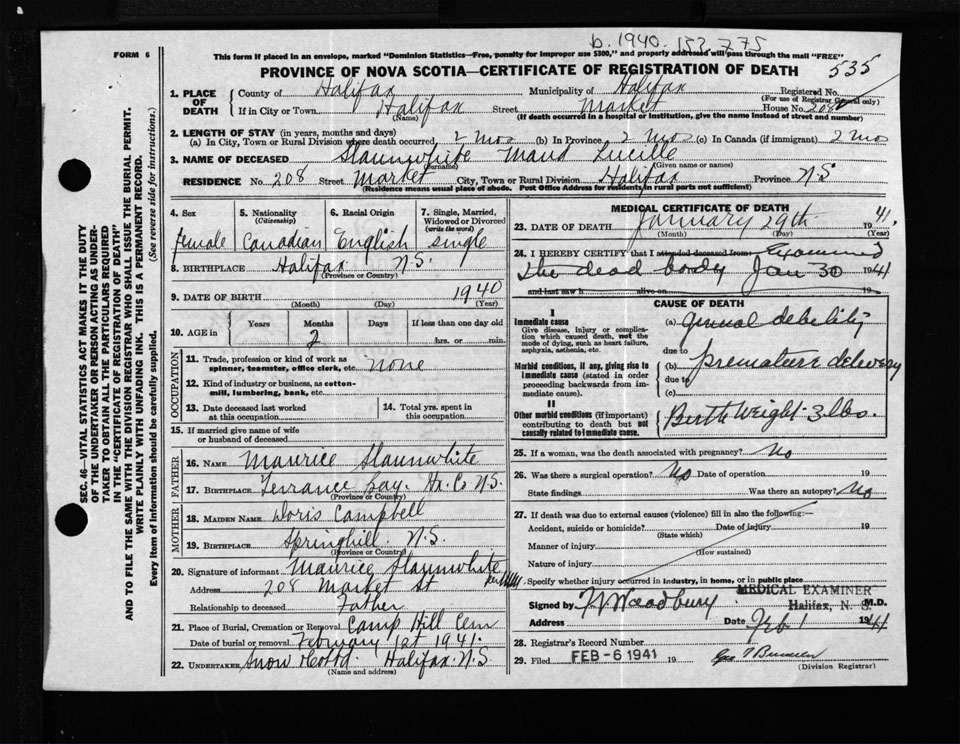 b. 1940. 153 775
FORM 6
This form if placed in an envelope, marked "Dominion Statistics—Free, penalty for improper use $300," and properly addressed will pass through the mail "FREE"
PROVINCE OF NOVA SCOTIA—CERTIFICATE OF REGISTRATION OF DEATH 535
1. PLACE OF DEATH
County of Halifax Municipality of Halifax Registered No.
(For use of Registrar General only)
If in City or Town Halifax Street Market House No. 208
(Name) (If death occurred in a hospital or institution, give the name instead of street and number)
2. LENGTH OF STAY (in years, months and days)
(a) In City, Town or Rural Division where death occurred 2 mos (b) In Province 2 mos (c) In Canada (if immigrant) 2 mos
3. NAME OF DECEASED Slaunwhite Maud Lucille
(Surname) (Given name or names)
RESIDENCE No. 208 Street Market City, Town or Rural Division Halifax Province N.S
(Residence means usual place of abode. Post Office Address for residents in rural parts not sufficient)
4. Sex
female
5. Nationality
(Citizenship)
Canadian
6. Racial Origin
English
7. Single, Married, Widowed or Divorced
(write the word)
single
8. BIRTHPLACE Halifax N.S.
(Province or Country)
9. DATE OF BIRTH 1940
(Month) (Day) (Year)
10. AGE in
Years Months Days If less than one day old
2 hrs. or min.
OCCUPATION
11. Trade, profession or kind of work as spinner, teamster, office clerk, etc. none
12. Kind of industry or business, as cotton-mill, lumbering, bank, etc.
13. Date deceased last worked at this occupation
14. Total yrs. spent in this occupation
15. If married give name of wife or husband of deceased
FATHER
16. NAME Maurice Slaunwhite
17. BIRTHPLACE Terrance Bay. Hx. Co N.S.
(Province or Country)
MOTHER
18. MAIDEN NAME Doris Campbell
19. BIRTHPLACE Springhill N.S.
(Province or Country)
20. Signature of informant Maurice Slaunwhite
Address 208 Market St
Relationship to deceased Father
21. Place of Burial, Cremation or Removal Camp Hill Cem
Date of burial or removal February 1st 1941.
22. UNDERTAKER Snow Co Ltd. Halifax. N.S
(Name and address)
MEDICAL CERTIFICATE OF DEATH
23. DATE OF DEATH January 29th 1941.
(Month) (Day) (Year)
24. I HEREBY CERTIFY that I attended deceased from: Examined
The dead body Jan 30 1941
and last saw h alive on 19
CAUSE OF DEATH
I
Immediate cause
Give disease, injury or complication which caused death, not the mode of dying, such as heart failure, asphyxia, asthenia, etc.
(a) General debility
due to
Morbid conditions, if any, giving rise to immediate cause (stated in order proceeding backwards from immediate cause).
(b) premature delivery
due to
(c)
II
Other morbid conditions (if important) contributing to death but not causally related to immediate cause.
Birth Weight-3 lbs.
25. If a woman, was the death associated with pregnancy? No
26. Was there a surgical operation? No Date of operation 19
State findings Was there an autopsy? No
27. If death was due to external causes (violence) fill in also the following:—
Accident, suicide or homicide? Date of injury 19
(State which)
Manner of injury
(How sustained)
Nature of injury
Specify whether injury occurred in industry, in home, or in public place
MEDICAL EXAMINER
Halifax, N. S.
Signed by F V Woodbury M.D.
Address Date Feb 1 1941
28. Registrar's Record Number
29. Filed FEB - 6 1941 19
(Division Registrar)
SEC. 46—VITAL STATISTICS ACT MAKES IT THE DUTY
OF THE UNDERTAKER OR PERSON ACTING AS UNDER-
TAKER TO OBTAIN ALL THE PARTICULARS REQUIRED
IN THE "CERTIFICATE OF REGISTRATION OF DEATH"
AND TO FILE THE SAME WITH THE DIVISION REGISTRAR WHO SHALL ISSUE THE BURIAL PERMIT.
WRITE PLAINLY WITH UNFADING INK. THIS IS A PERMANENT RECORD.
Every item of information should be carefully supplied. (See reverse side for instructions.)